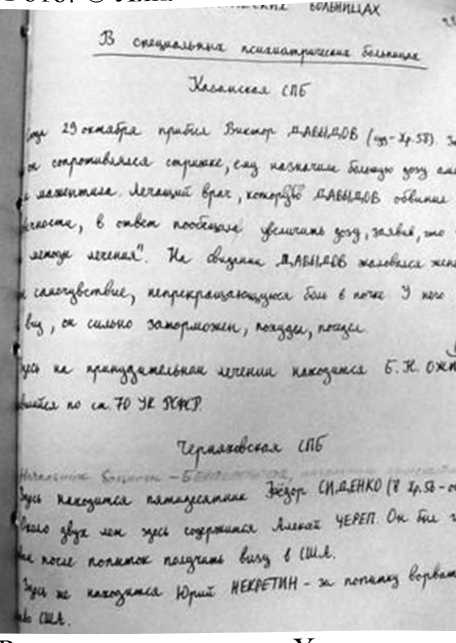 БОЛЬНИЦАХ
В специальных психиатрических больницах
Казанская СПБ
29 октября прибыл Виктор ДАВЫДОВ (суд - Хр.58).
он сопротивлялся стрижке, ему назначили большую дозу
мажептила. Лечащий врач, которую ДАВЫДОВ обвинил
в ответ пообещала увеличить дозу, заявив, что
методы лечения". На свидании ДАВЫДОВ жаловался жене
самочувствие, непрекращающуюся боль в почке. У него
вид, он сильно заторможен, похудел, поседел.
на принудительном лечении находится Б.Н.
по ст. 70 УК РСФСР.
Черняховская СПБ
Начальник больницы -
Здесь находится пятидесятник Фёдор СИДЕНКО (
Около двух лет здесь содержится Алексей ЧЕРЕП. Он был
после попыток получить визу в США.
Здесь же находится Юрий НЕКРЕТИН - за попытку
США.